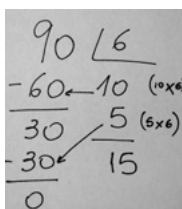 90 6
-60 ← 10 (10x6)
30 5 (5x6)
-30 15
0